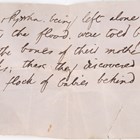 Pyrrha being left alone
the flood, were told b
the bones of their moth
, then they discovered
flock of babies behind